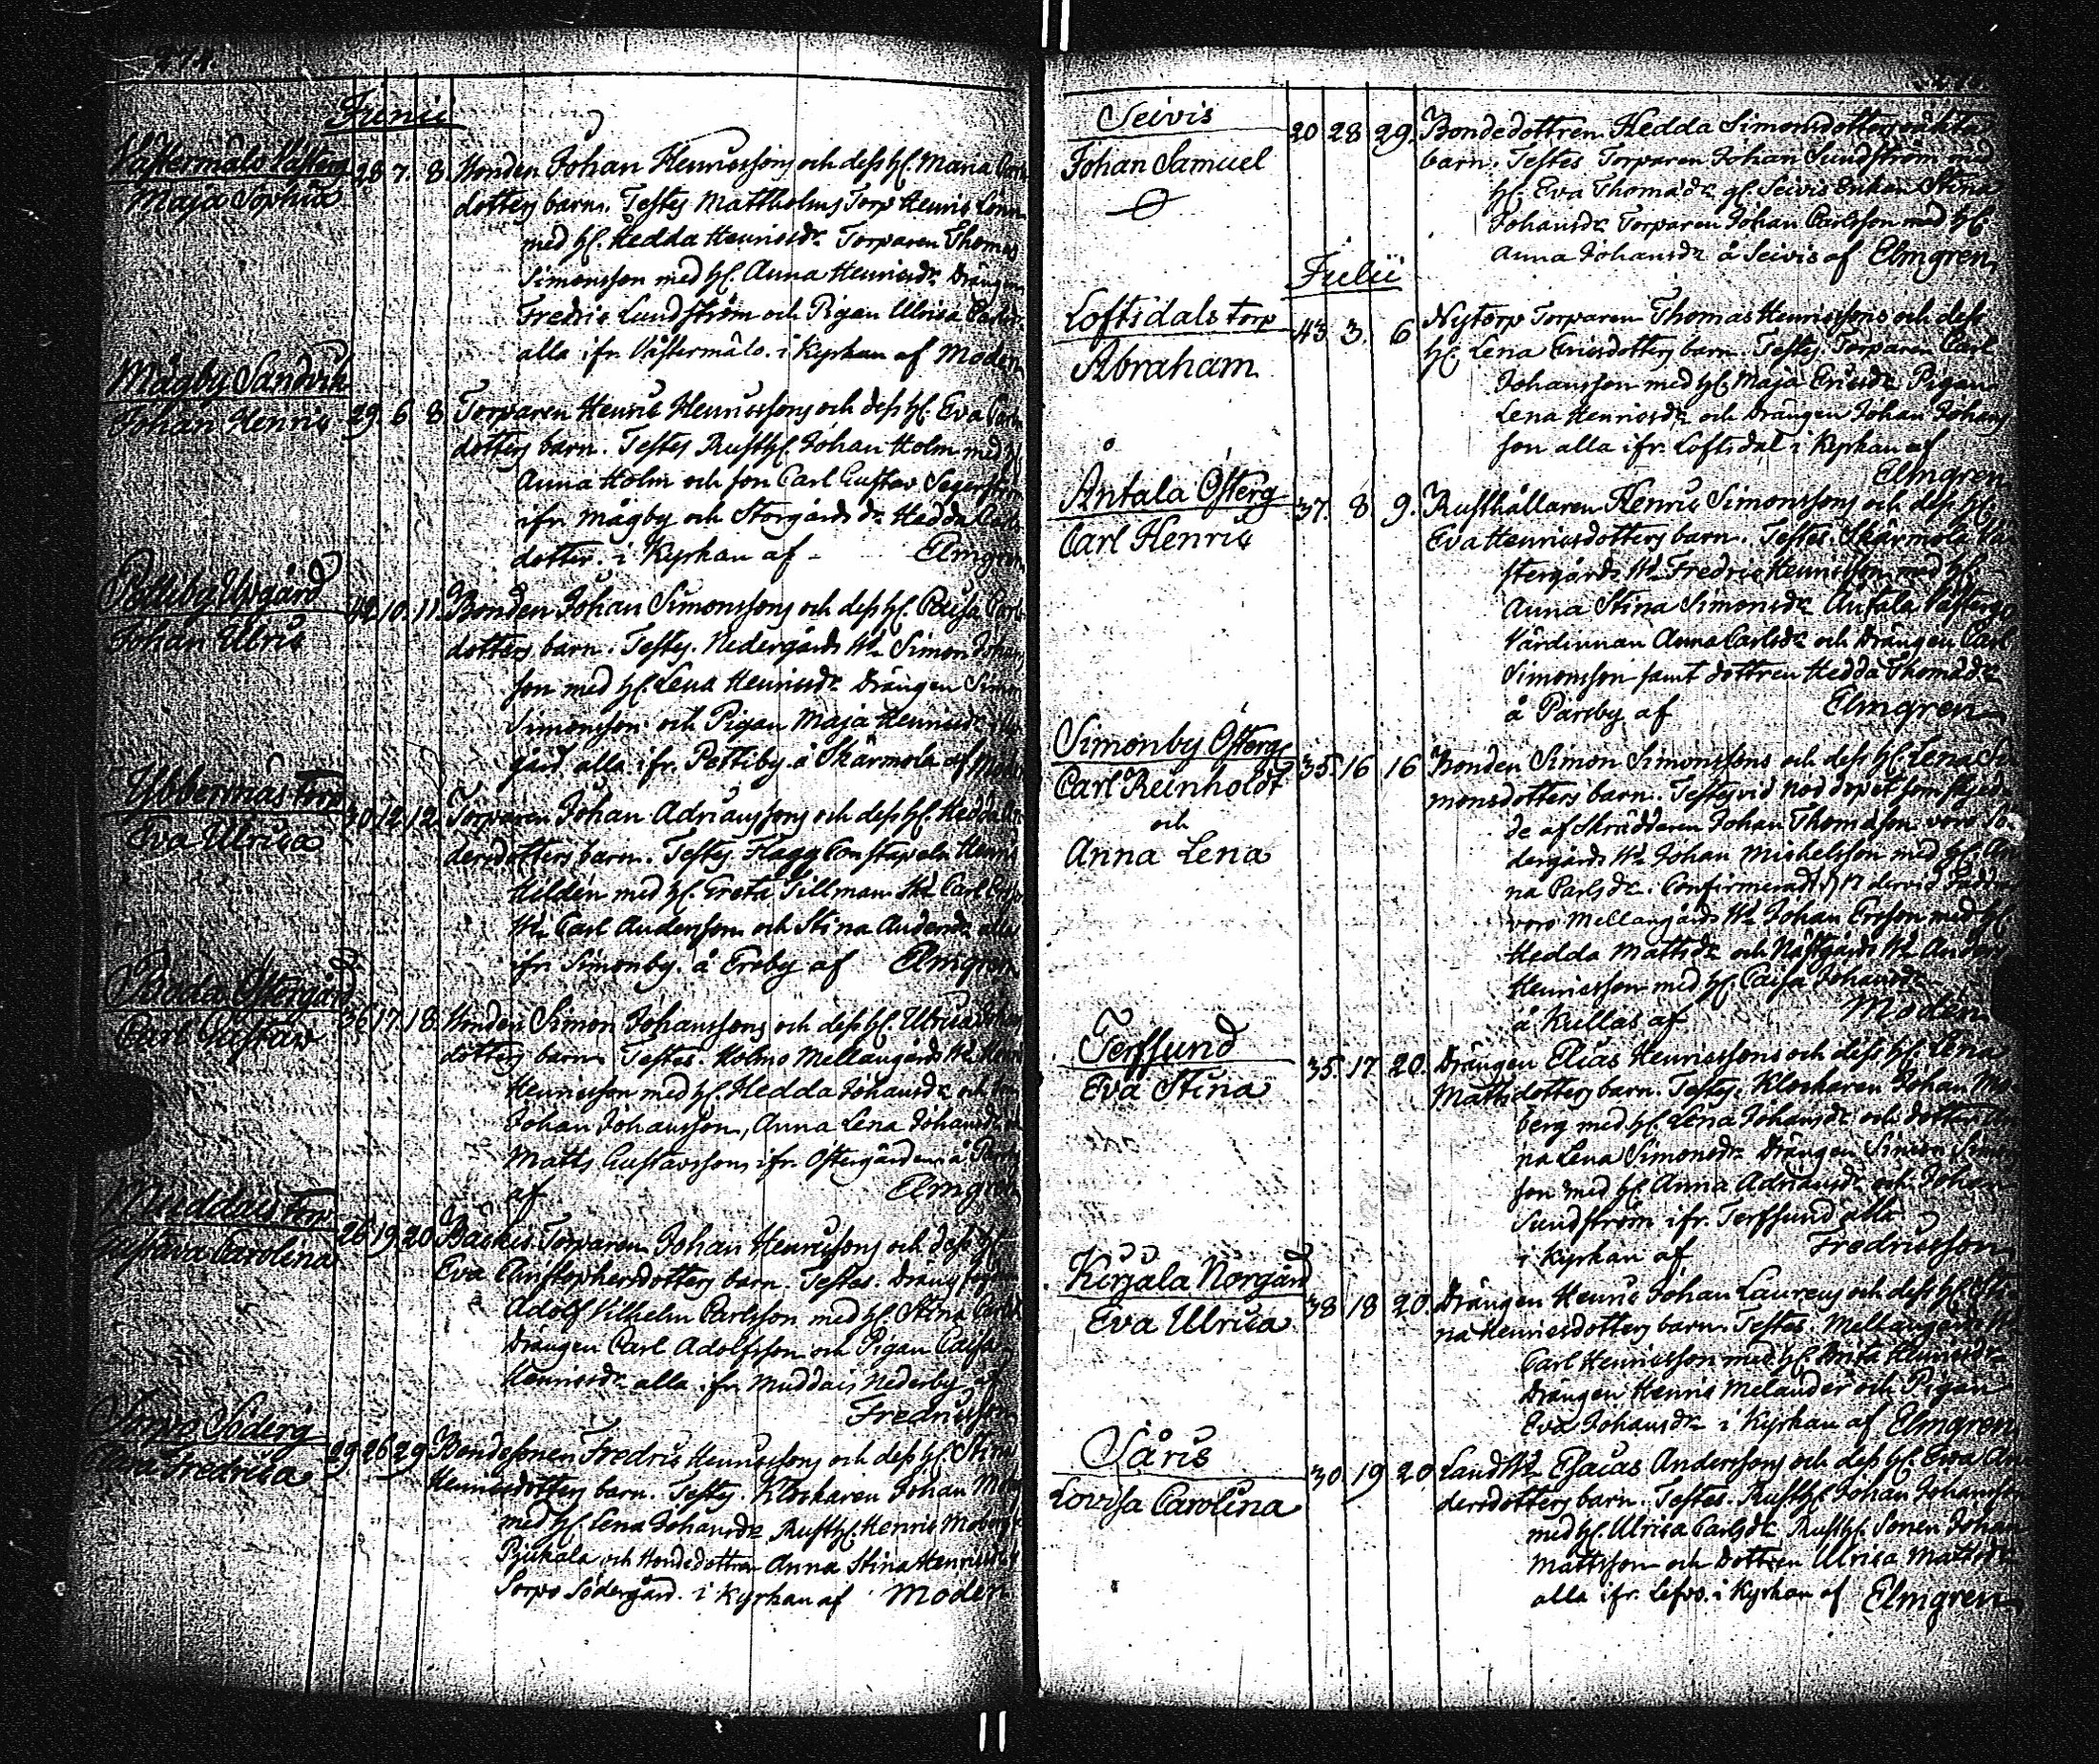 274.
Junii
Västermåls Västerg
Maja Sophia
28 7. 8 Bonden Johan Henricssons och dess H. Maria
dotters barn. Testes Mattholms Torp Henric
med H. Hedda Henricsdr. Torparen Thomas
Simonsson med H. Anna Henricsdr. Drängen
Fredric Lundström och Pigan Ulrica
alla ifr. Västermåls. i Kyrkan af Moden
Mågby Sandvik
Johan Henric
29. 6 8 Torparen Henric Henricssons och dess H. Eva
dotters barn. Testes Rusth. Johan Holm med H.
Anna Holm och son Carl Gustav
ifr. Mågby och Storgårds dr. Hedda
dotter. i Kyrkan af - Elmgren
Pettiby Upgård
Johan Ulric
42. 10. 11. Bonden Johan Simonssons och dess H. Caisa
dotters barn. Testes. Nedergårds Wd. Simon Johans
son med H. Lena Henricsdr. Drängen Simon
Simonsson och Pigan Maja Henricsdr.
gård alla ifr. Pettiby. å Skärmola af
Ybbernäs Torp
Eva Ulrica
30 12. 12. Torparen Johan Adrianssons och dess H. Hedda
dersdotters barn. Testes. Flagg Constapeln
Hildén med H. Greta Tillman Wd. Carl
Wd. Carl Andersson och Stina Andersdr. alla
ifr. Simonby. å Ersby af Elmgren
Östergård
Carl Gustaw
36 17. 18. Bonden Simon Johanssons och dess H. Ulrica
dotters barn. Testes. Holmo Mellangårds Wd.
Henricsson med H. Hedda Johansdr. och
Johan Johansson, Anna Lena Johansdr.
Matts Gustavsson ifr. Östergården å
af Elmgren
Muddais Torp
Gustava Carolina
26 19. 20 Backes Torparen Johan Henricssons och dess H.
Eva Christophersdotters barn. Testes.
Adolf Vilhelm Carlsson med H. Stina
Drängen Carl Adolfsson och Pigan Caisa
Henricsdr. alla ifr. Muddais Nederby af
Fredricsson
Sorpo Söderg
Fredrica
29 26 29 Bondesonen Fredric Henricssons och dess H. Stina
Henricsdotters barn. Testes. Klockaren Johan
med H. Lena Johansdr. Rusth. Henric Moberg
Pjukala och Bondedottren Anna Stina Henricsdr.
Sorpo Södergård. i Kyrkan af Moden
Seivis
Johan Samuel
20 28 29. Bondedottren Hedda Simonsdotters oäkta
barn. Testes Torparen Johan Sundström med
H. Eva Thomadr. gl. Seivis Enkan Stina
Johansdr. Torparen Johan Carlsson med H.
Anna Johansdr. å Seivis af Elmgren
Julii
Loftsdals torp
Abraham
43. 3. 6 Nytorp Torparen Thomas Henricssons och dess
H. Lena Ericsdotters barn. Testes. Torparen Carl
Johansson med H. Maja Ericsdr. Pigan
Lena Henricsdr. och Drängen Johan Johans
son alla ifr. Loftsdal i Kyrkan af
Elmgren
Antala Österg
Carl Henric
37. 8 9. Rusthållaren Henric Simonssons och dess H.
Eva Henricsdotters barn. Testes. Skärmola Vä
stergårds Wd. Fredric Henricsson med H.
Anna Stina Simonsdr. Antala Västergs
Värdinnan Anna Carlsdr. och Drängen Carl
Simonsson samt dottren Hedda Thomadr.
å Parsby af Elmgren
Simonby Österg
Carl Reinholdt
och
Anna Lena
35. 16 16 Bonden Simon Simonssons och dess H. Lena Si
monsdotters barn. Testes vid nöddopet som skjed
de af Skräddaren Johan Thomasson voro Sö
dergårds Wd. Johan Michelsson med H. An
na Carlsdr. Confirmeradt d 17 dervid
voro Mellangårds Wd. Johan Ersson med H.
Hedda Mattsdr. och Wd. Anders
Henricsson med H. Caisa Johansdr.
å Kullas af Modén
Terfsund
Eva Stina
35. 17. 20. Drängen Elias Henricssons och dess H. Lena
Mattsdotters barn. Testes. Klockaren Johan Mo
berg med H. Lena Johansdr. och dotter
na Lena Simonsdr. Drängen Simon Simons
son med H. Anna Adriansdr. och Johan
Sundström ifr. Terfsund alla
i Kyrkan af Fredricsson
Kirjala Norgård
Eva Ulrica
38 18 20. Drängen Henric Johan Laurens och dess H. Sti
na Henricsdotters barn. Testes. Mellangårds
Carl Henricsson med H. Brita Henricsdr.
Drängen Henric Melander och Pigan
Eva Johansdr. i Kyrkan af Elmgren
Såris
Lovisa Carolina
30. 19 20. Landtb. Esaias Anderssons och dess H. Eva An
dersdotters barn. Testes. Rusth. Johan Johansson
med H. Ulrica Carlsdr. Rusth. Sonen Johan
Mattsson och Dottren Ulrica Mattsdr.
alla ifr. Lefvo. i Kyrkan af Elmgren